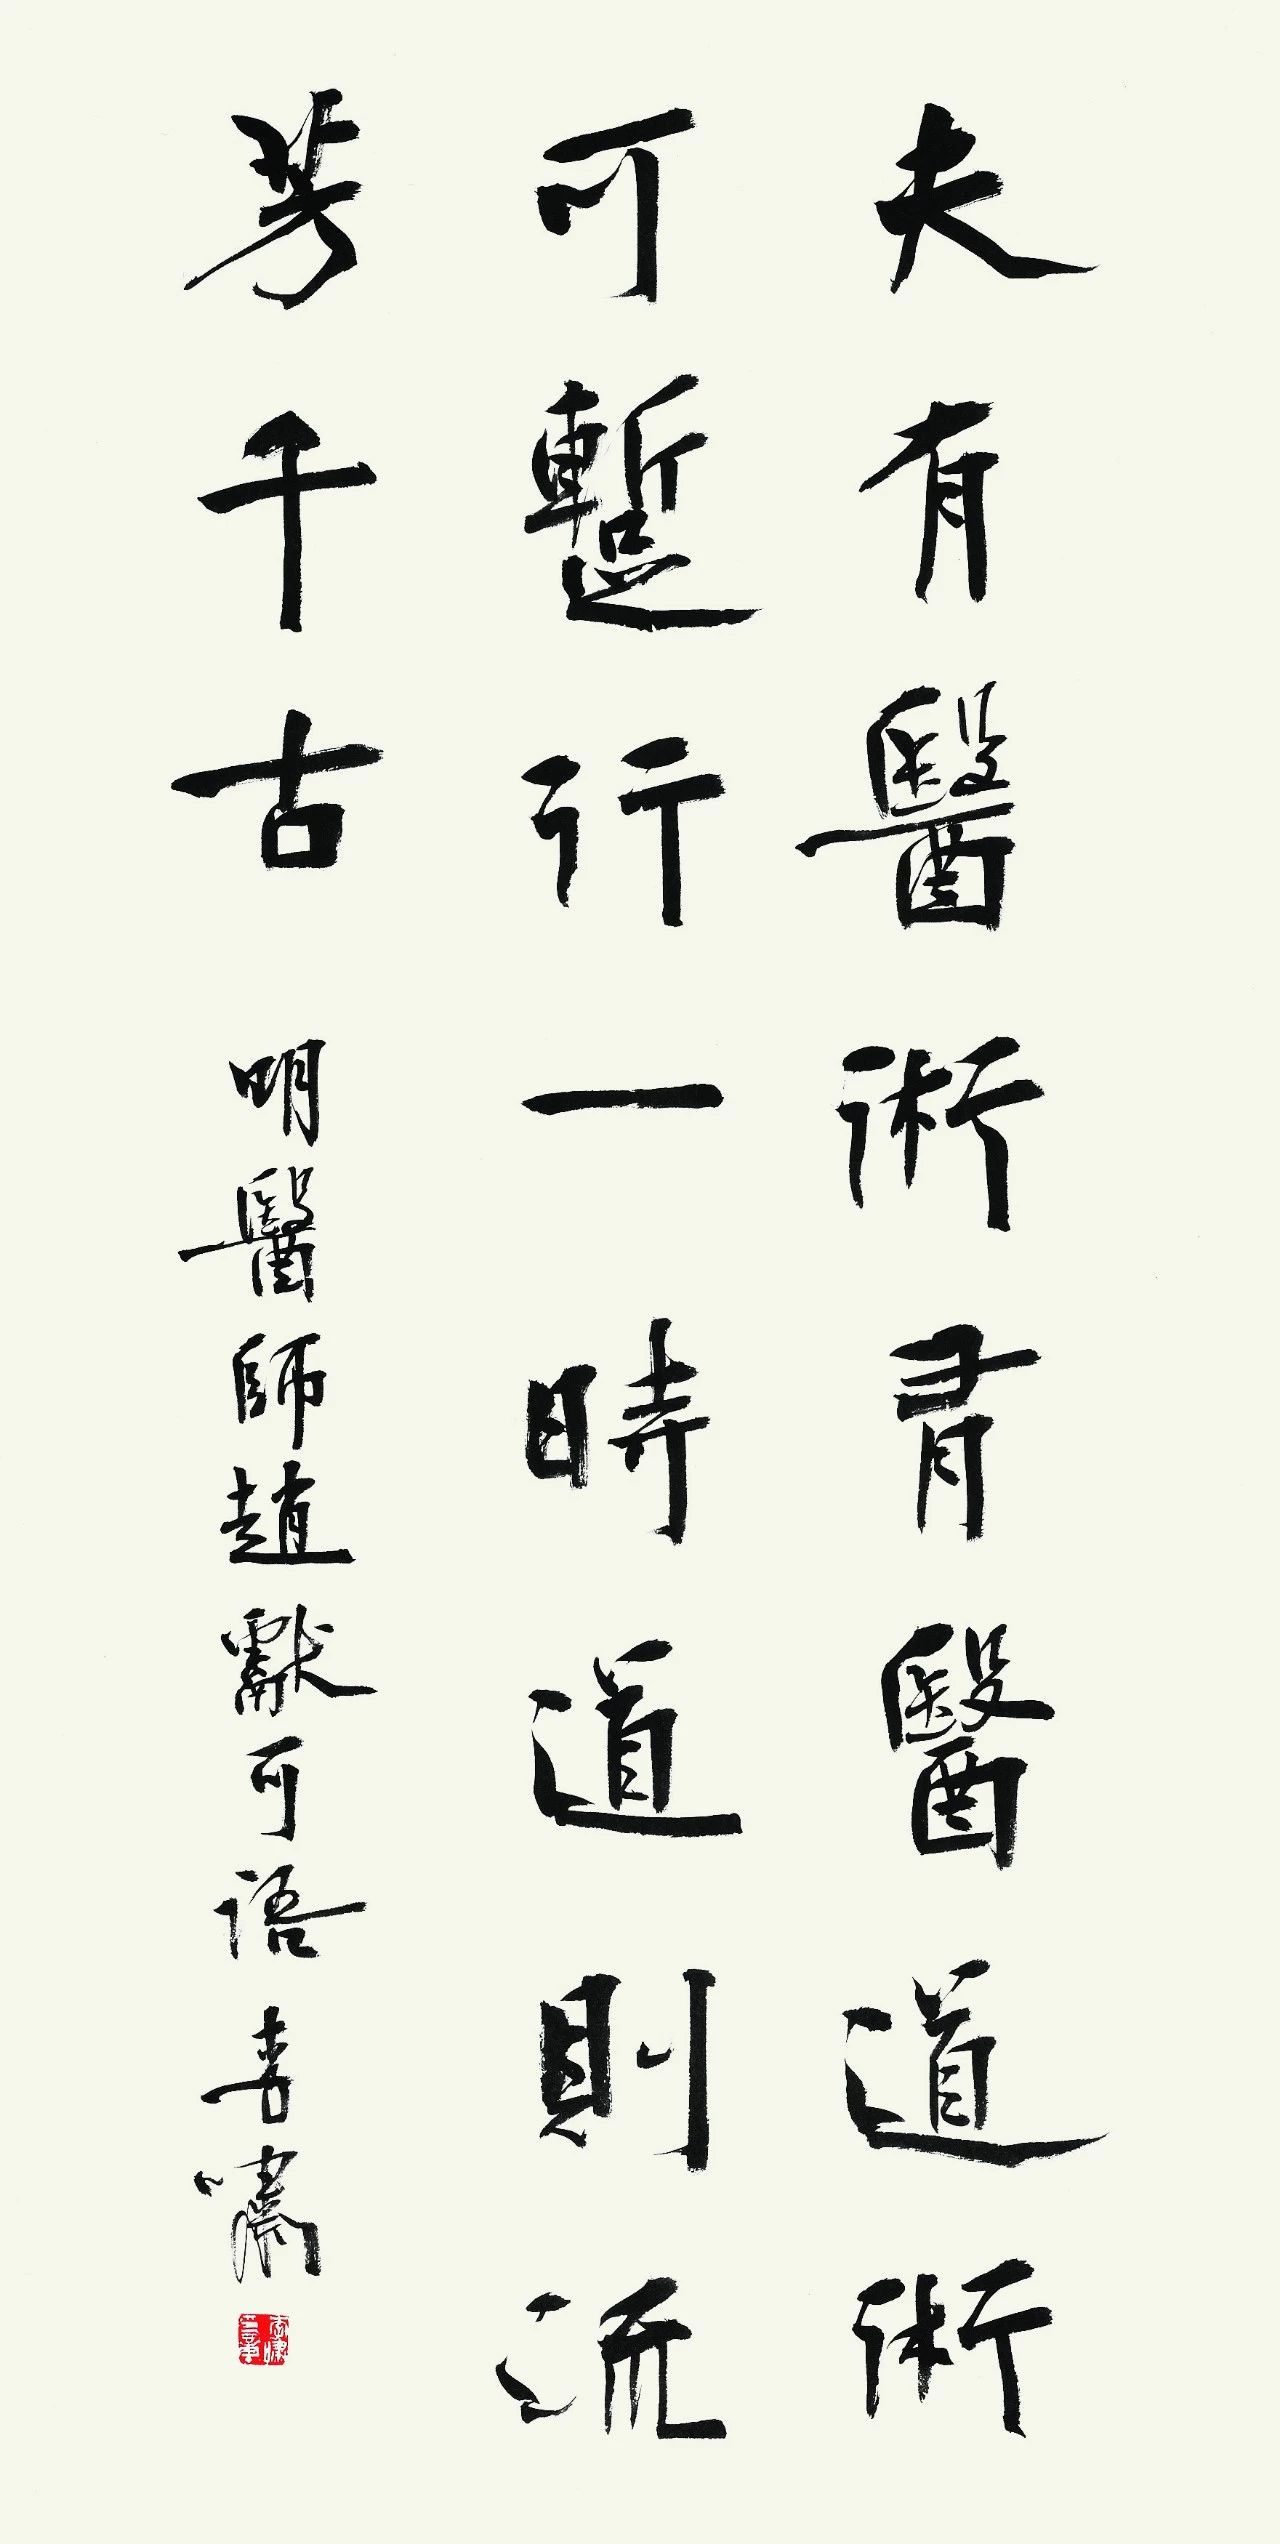 夫有醫術有醫道術
可蹔行一時道則流
芳千古 明醫師趙獻可語 李嘯